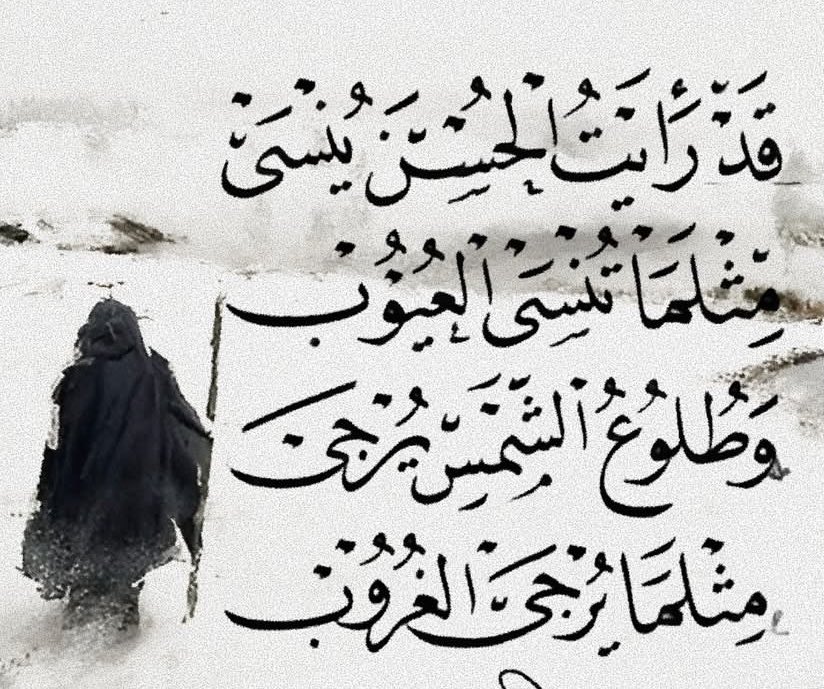 قَدْ رَأَيْتُ الْحُسْنَ يُنْسَىْ
مِّثْلَمَا تُنْسَى الْعُيُوْبْ
وَطُلُوْعُ الْشَّمْسِ يُرْجَىْ
مِثْلَمَا يُرْجَىْ الْغُرُوْبْ